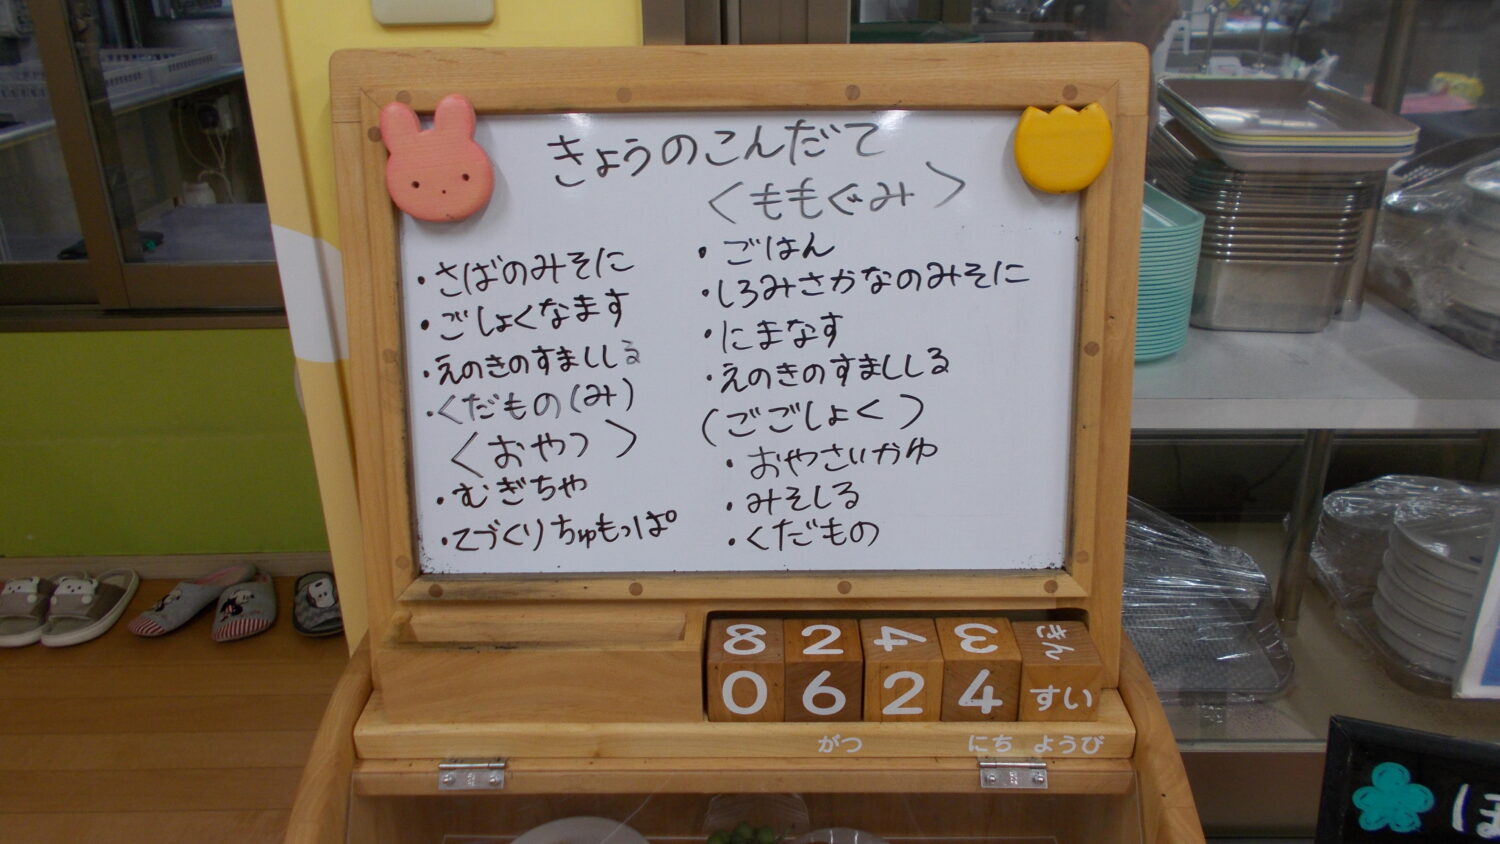 きょうのこんだて
・さばのみそに
・ごしょくなます
・えのきのすましじる
・くだもの(み)
<おやつ>
・むぎちゃ
・てづくりちゅもっぱ
<ももぐみ>
・ごはん
・しろみさかなのみそに
・にまなす
・えのきのすまししる
(ごごしょく)
・おやさいかゆ
・みそしる
・くだもの
8 2 4 3 きん
0 6 2 4 すい
がつ にち ようび